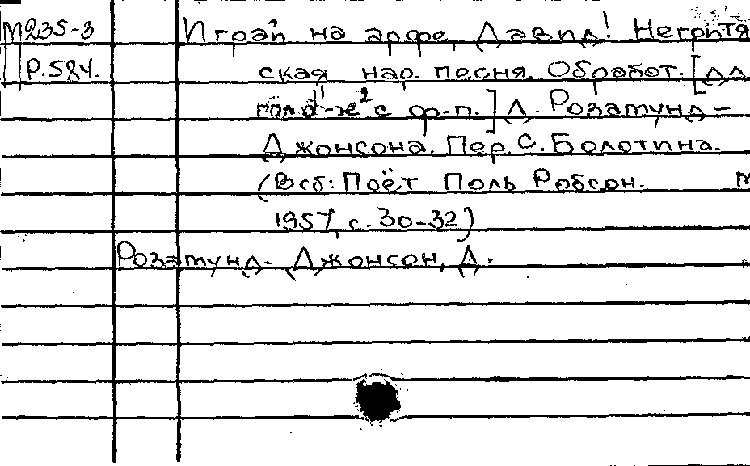 М235-3 Играй на арфе, Давид! Негритян
P.584. ская нар. песня. Обработ. [дл
с ф-п.] Д. Розатунд-
Джонсона. Пер. С. Болотина.
(В сб: Поёт Поль Робсон. М
1957, с. 30-32)
Розатунд-Джонсон, Д.